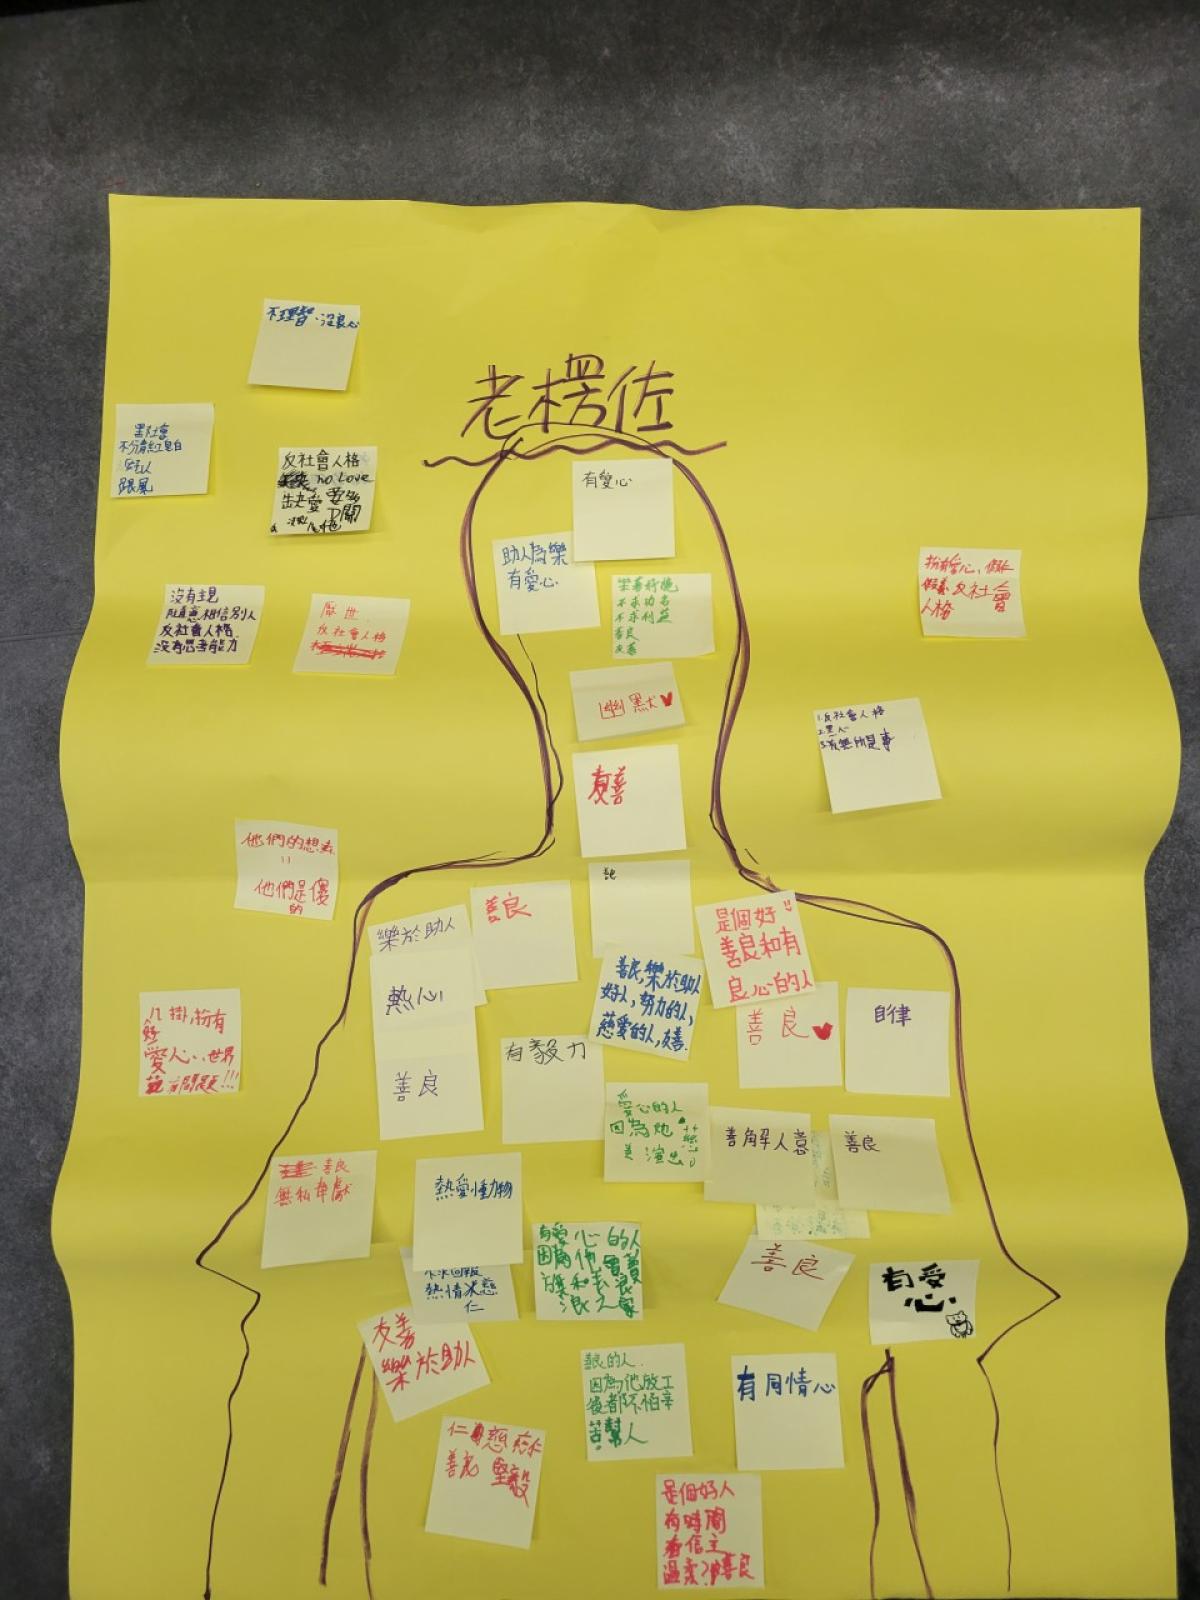 老楞佐
不理智、沒良心
黑社會
不分青紅皂白
跟風
反社會人格
no Love
缺愛
沒有主見
隨意相信別人
反社會人格
沒有思考能力
厭世
反社會人格
扮有愛心、
反社會
人格
1.反社會人格
2.黑心
3.有無所是事
他們的想法
=
他們是傻
的
八掛,扮有
愛心、世界
觀有問題!!!
有愛心
助人為樂
有愛心
不求功名
不求利益
善良
友善
幽默
友善
善良
樂於助人
熱心
善良
是個好
善良和有
良心的人
善良,樂於助人
好人,努力的人,
慈愛的人,友善.
善良
自律
有毅力
愛心的人
因為他
善解人意
善良
善良
無私奉獻
熱愛動物
不求回報
熱情
仁
有愛心的人
因為他會養
善良
有愛
心
友善
樂於助人
善良的人.
因為他放工
後都不怕辛
苦幫人
有同情心
仁慈
善良 堅毅
是個好人
有時間
有信主
善良